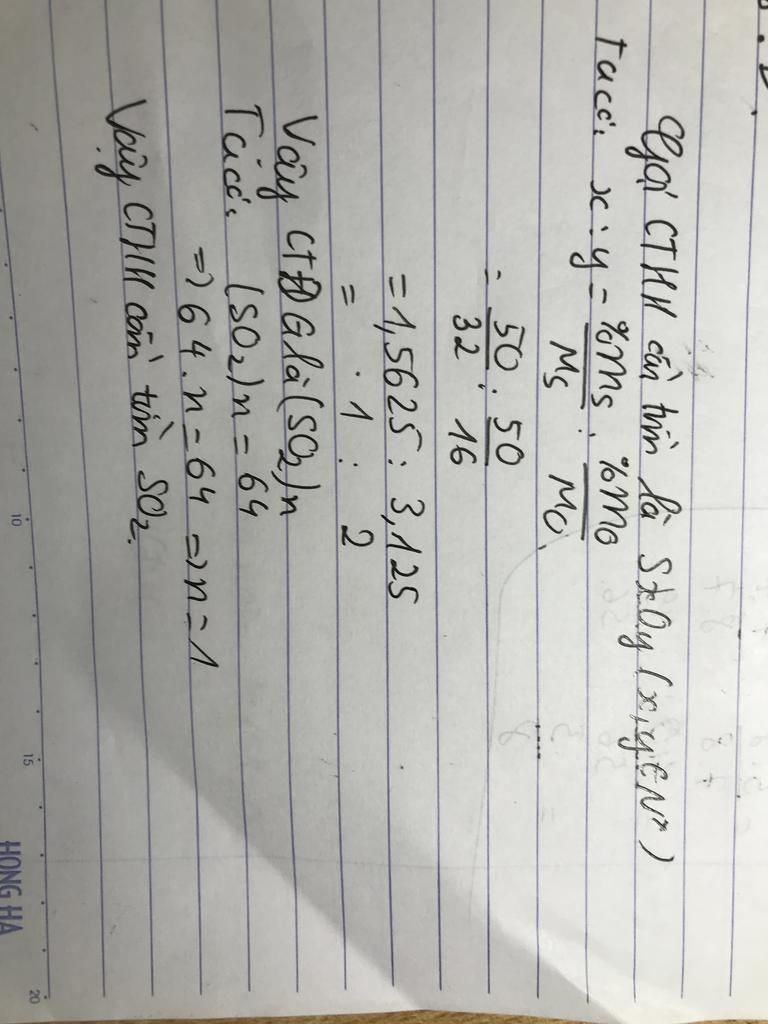 Gọi CTHH cần tìm là SxOy (x,y ∈ N*)
Ta có: x : y = %mS/MS : %mO/MO
= 50/32 : 50/16
= 1,5625 : 3,125
= 1 : 2
Vậy CTĐG là (SO2)n
Ta có: (SO2)n = 64
=> 64.n = 64 => n = 1
Vậy CTHH cần tìm SO2.
10
15
20
HONG HA